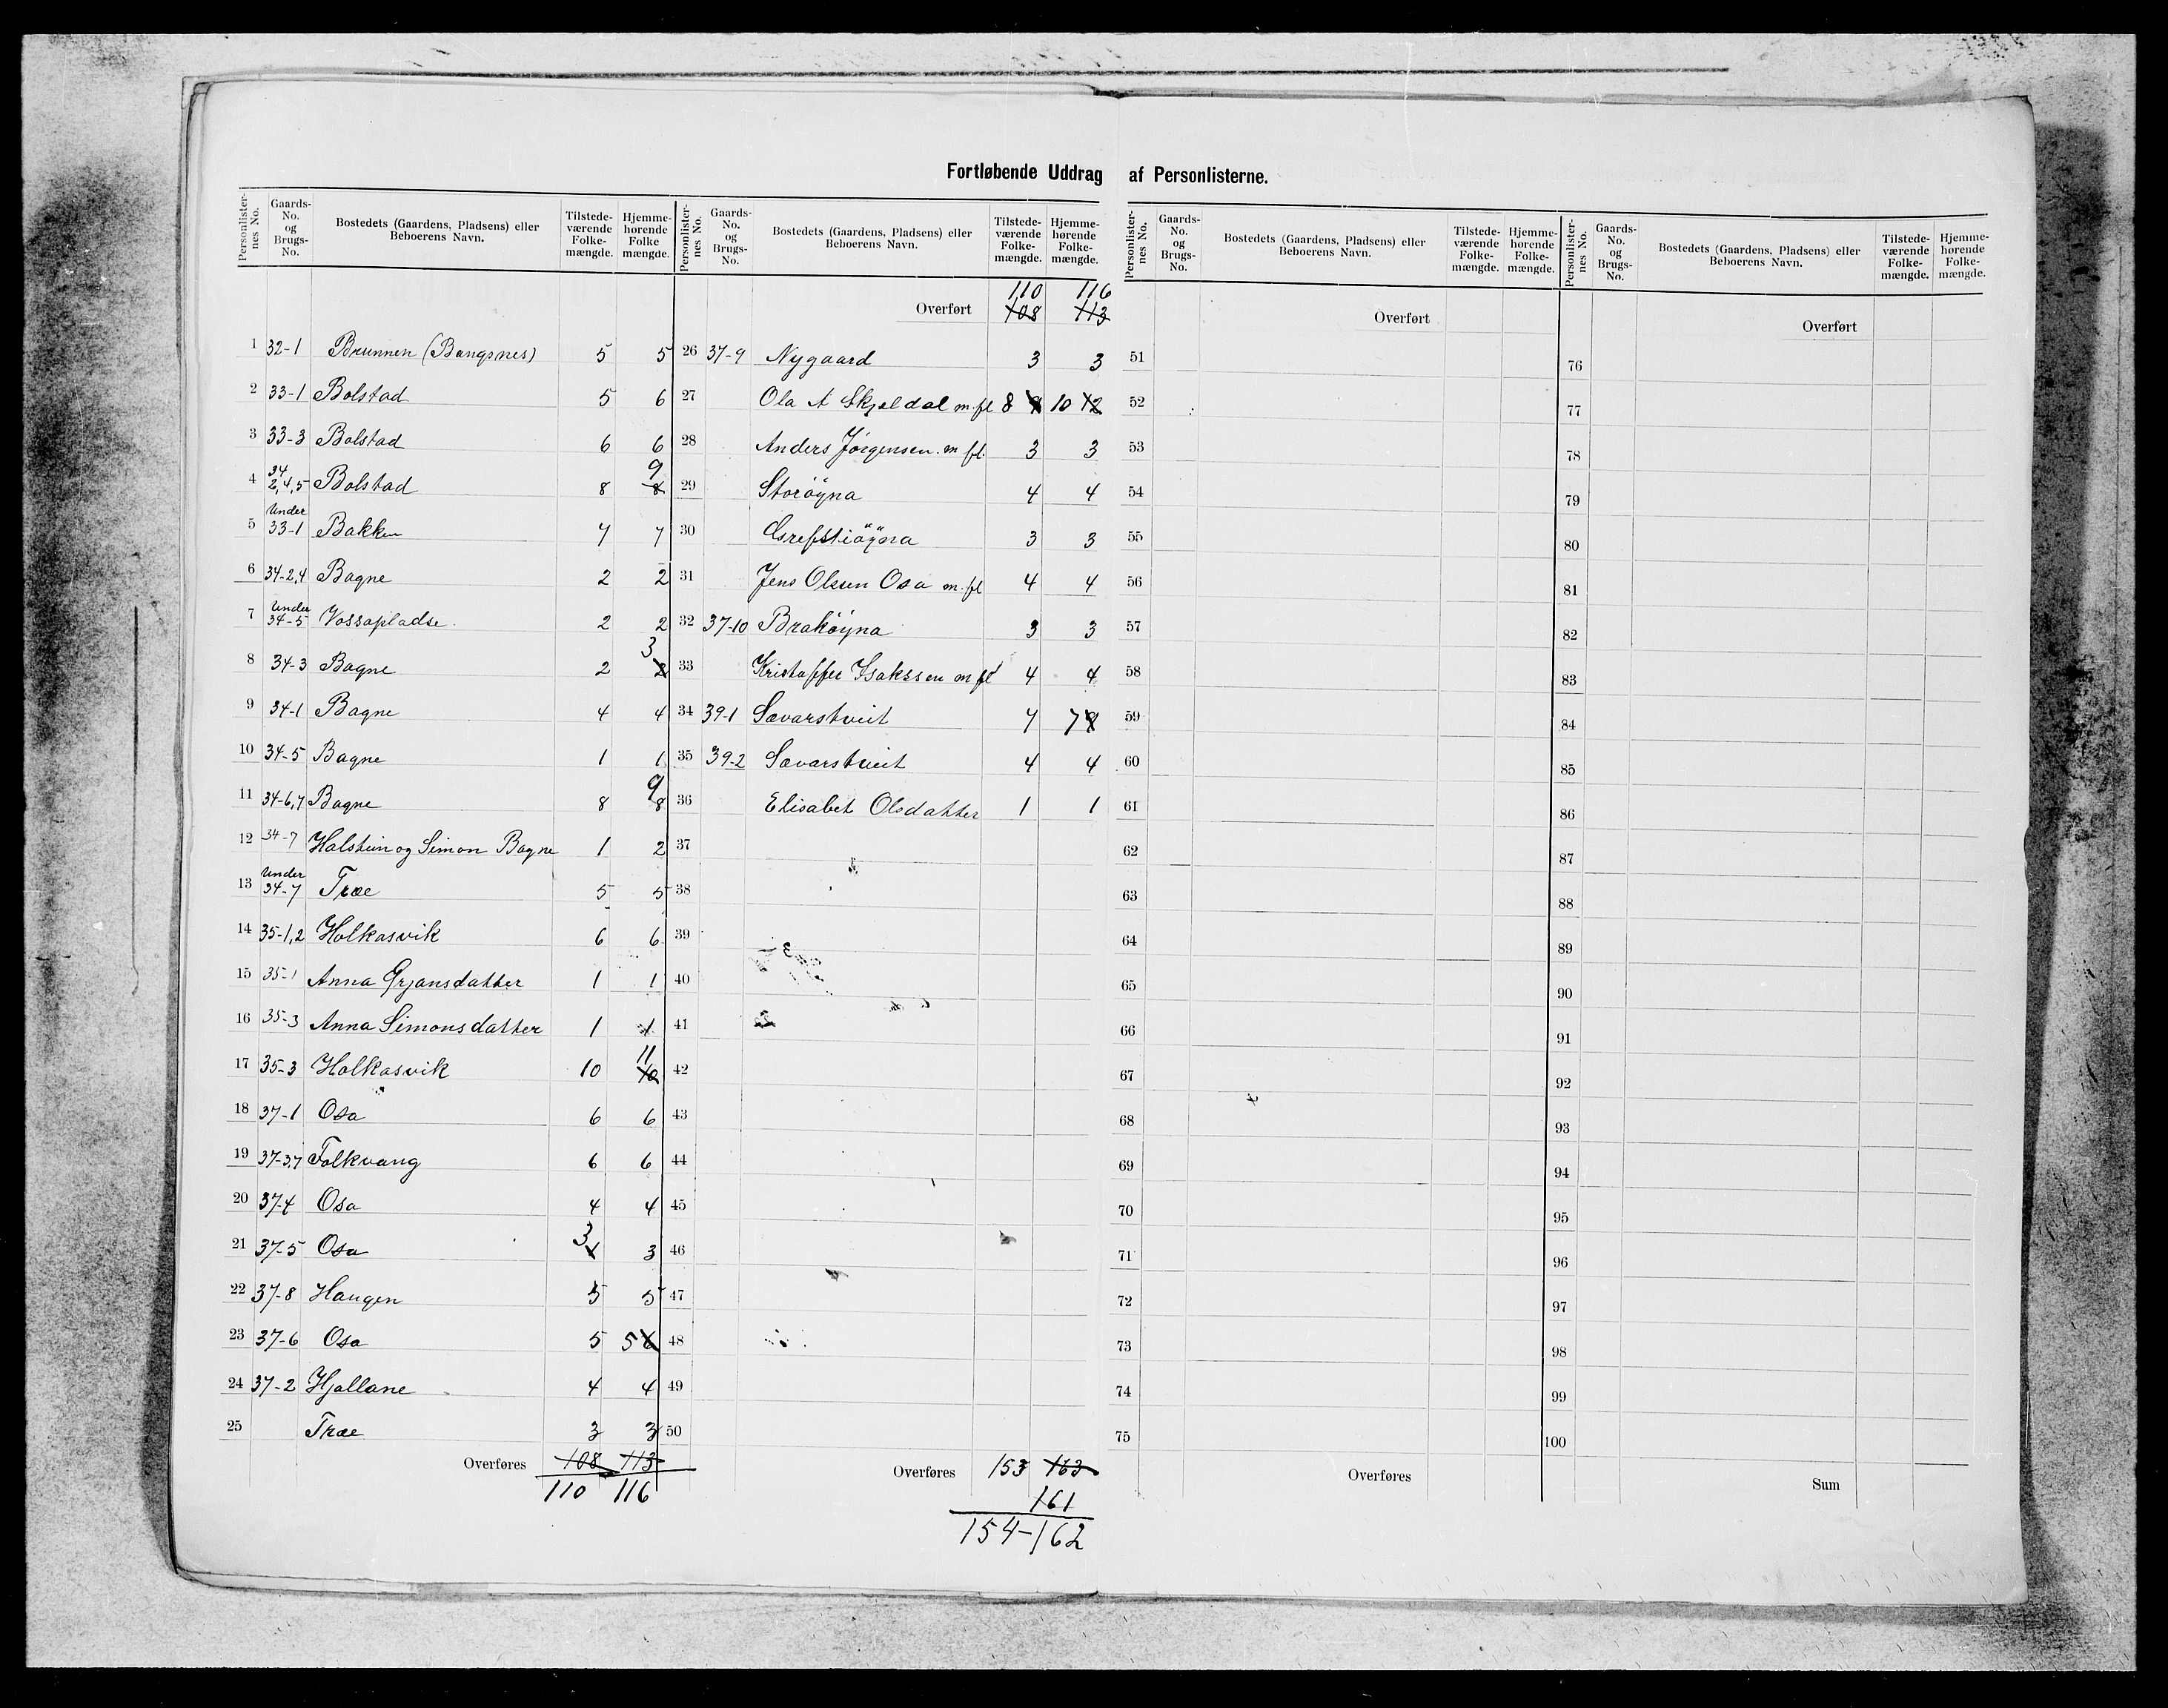 Fortløbende Uddrag af Personlisterne.
Personlister-nes No. Gaards-No. og Brugs-No. Bostedets (Gaardens, Pladsens) eller Beboerens Navn. Tilstede-værende Folke-mængde. Hjemme-hørende Folke mængde. Personlister-nes No. Gaards-No. og Brugs-No. Bostedets (Gaardens, Pladsens) eller Beboerens Navn. Tilstede-værende Folke-mængde. Hjemme-hørende Folke-mængde.
1 32-1 Brunnen (Bangsnes) 5 5
2 33-1 Bolstad 5 6
3 33-3 Bolstad 6 6
4 34 2,4,5 Bolstad 8 9 8
5 Under 33-1 Bakken 7 7
6 34-2,4 Bagne 2 2
7 Under 34-5 Vossapladse 2 2
8 34-3 Bagne 2 3 2
9 34-1 Bagne 4 4
10 34-5 Bagne 1 1
11 34-6,7 Bagne 8 9 8
12 34-7 Halstein og Simon Bagne 1 2
13 Under 34-7 Træe 5 5
14 35-1,2 Holkasvik 6 6
15 35-1 Anna Ørjansdatter 1 1
16 35-3 Anna Simonsdatter 1 1
17 35-3 Holkasvik 10 11 10
18 37-1 Osa 6 6
19 37-3,7 Folkvang 6 6
20 37-4 Osa 4 4
21 37-5 Osa 3 1 3
22 37-8 Haugen 5 5
23 37-6 Osa 5 5 6
24 37-2 Hjallane 4 4
25 Træe 3 3
Overføres 108 113
110 116
110 116
Overført 108 113
26 37-9 Nygaard 3 3
27 Ola A Skjeldal m.fl 8 9 10 12
28 Anders Jørgensen m fl. 3 3
29 Storöyna 4 4
30 Grefstiöyna 3 3
31 Jens Olsen Osa m.fl 4 4
32 37-10 Braköyna 3 3
33 Kristoffer Isakssen m fl 4 4
34 39-1 Sævarstveit 7 7 8
35 39-2 Sævarstveit 4 4
36 Elisabet Olsdatter 1 1
37
38
39
40
41
42
43
44
45
46
47
48
49
50
Overføres 153 163
161
154-162
Personlister-nes No. Gaards-No. og Brugs-No. Bostedets (Gaardens, Pladsens) eller Beboerens Navn. Tilstede-værende Folke-mængde. Hjemme-hørende Folke-mængde. Personlister-nes No. Gaards-No. og Brugs-No. Bostedets (Gaardens, Pladsens) eller Beboerens Navn. Tilstede-værende Folke-mængde. Hjemme-hørende Folke-mængde.
Overført
51
52
53
54
55
56
57
58
59
60
61
62
63
64
65
66
67
68
69
70
71
72
73
74
75
Overføres
Overført
76
77
78
79
80
81
82
83
84
85
86
87
88
89
90
91
92
93
94
95
96
97
98
99
100
Sum